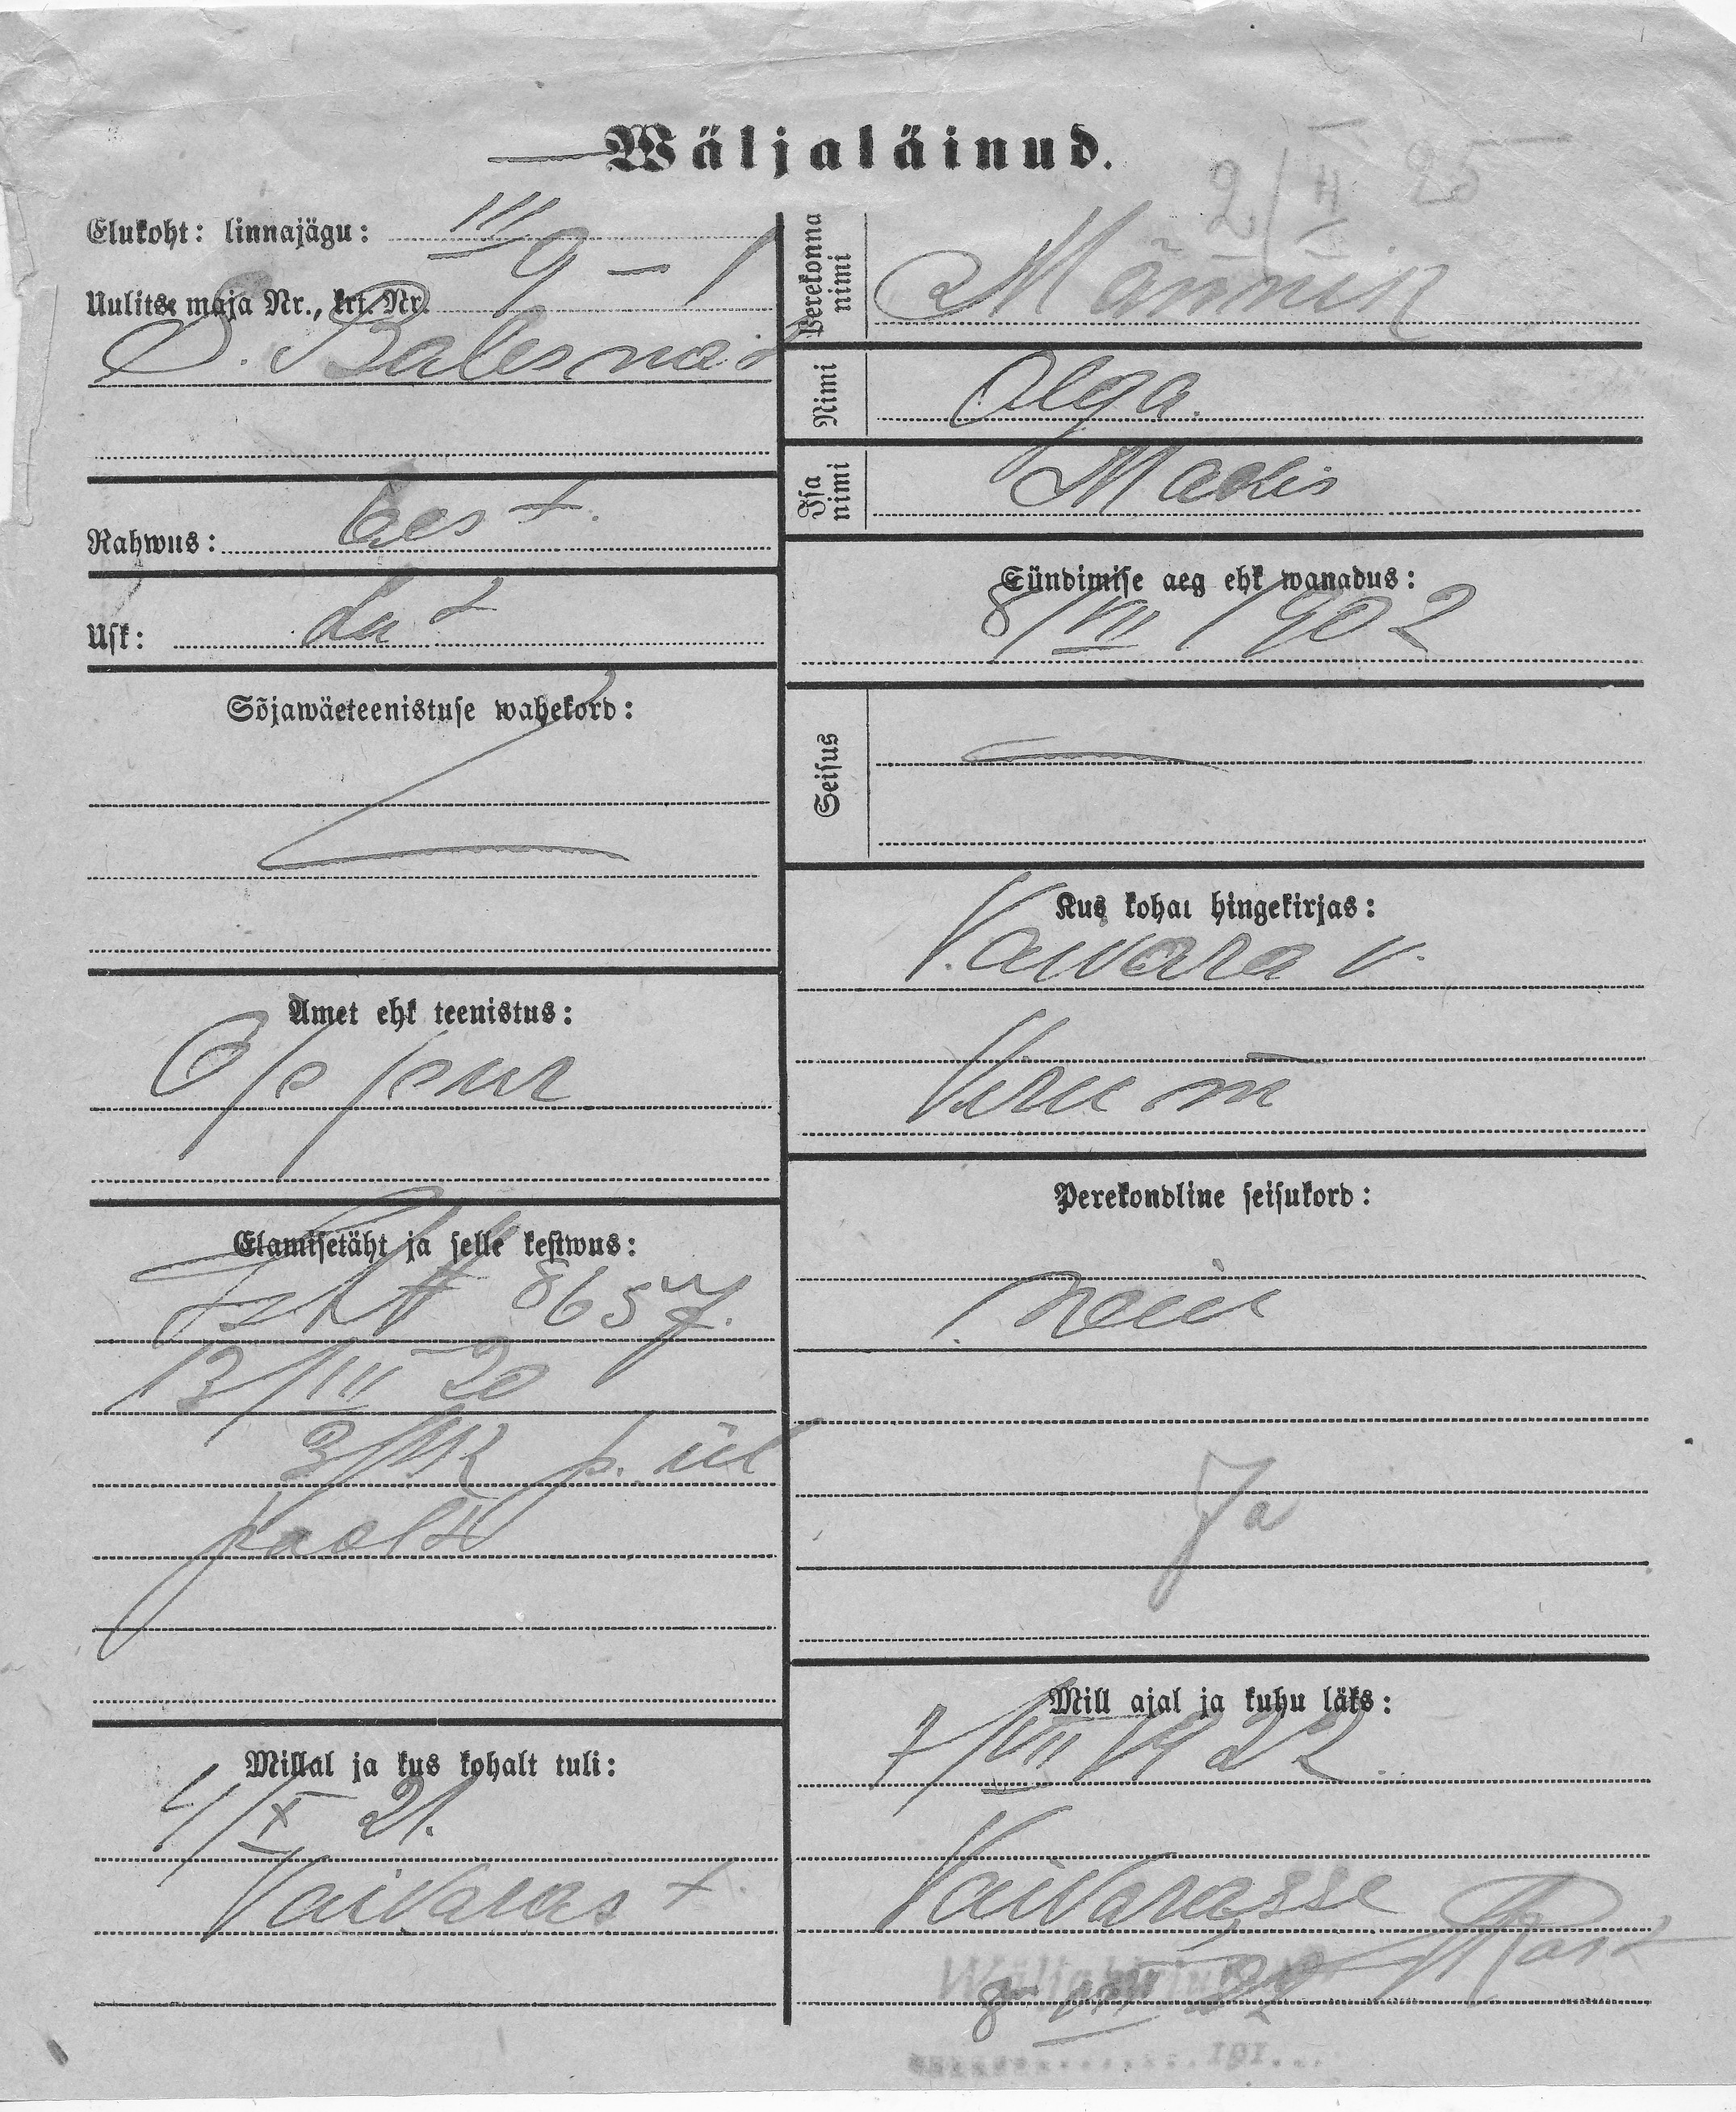 Wäljaläinud.
2/II 25
Elukoht: linnajägu: III
Uulitse maja Nr., krt. Nr. 9 – 1
Rahwus: Eest.
Usk: Lut
Sõjawäeteenistuse wahekord:
Amet ehk teenistus:
Elamisetäht ja selle kestwus:
8657.
13/III 20
p. ül
Millal ja kus kohalt tuli:
4/X 21.
Vaivarast.
Perekonna nimi
Männik
Nimi
Olga.
Isa nimi
Madis
Sündimise aeg ehk wanadus:
8/VII 1902
Seisus
Kus kohal hingekirjas:
Vaivara v.
Viru m
Perekondline seisukord:
Neiu
Ja
Mill ajal ja kuhu läks:
7/VII 1922.
Vaivarasse
191...